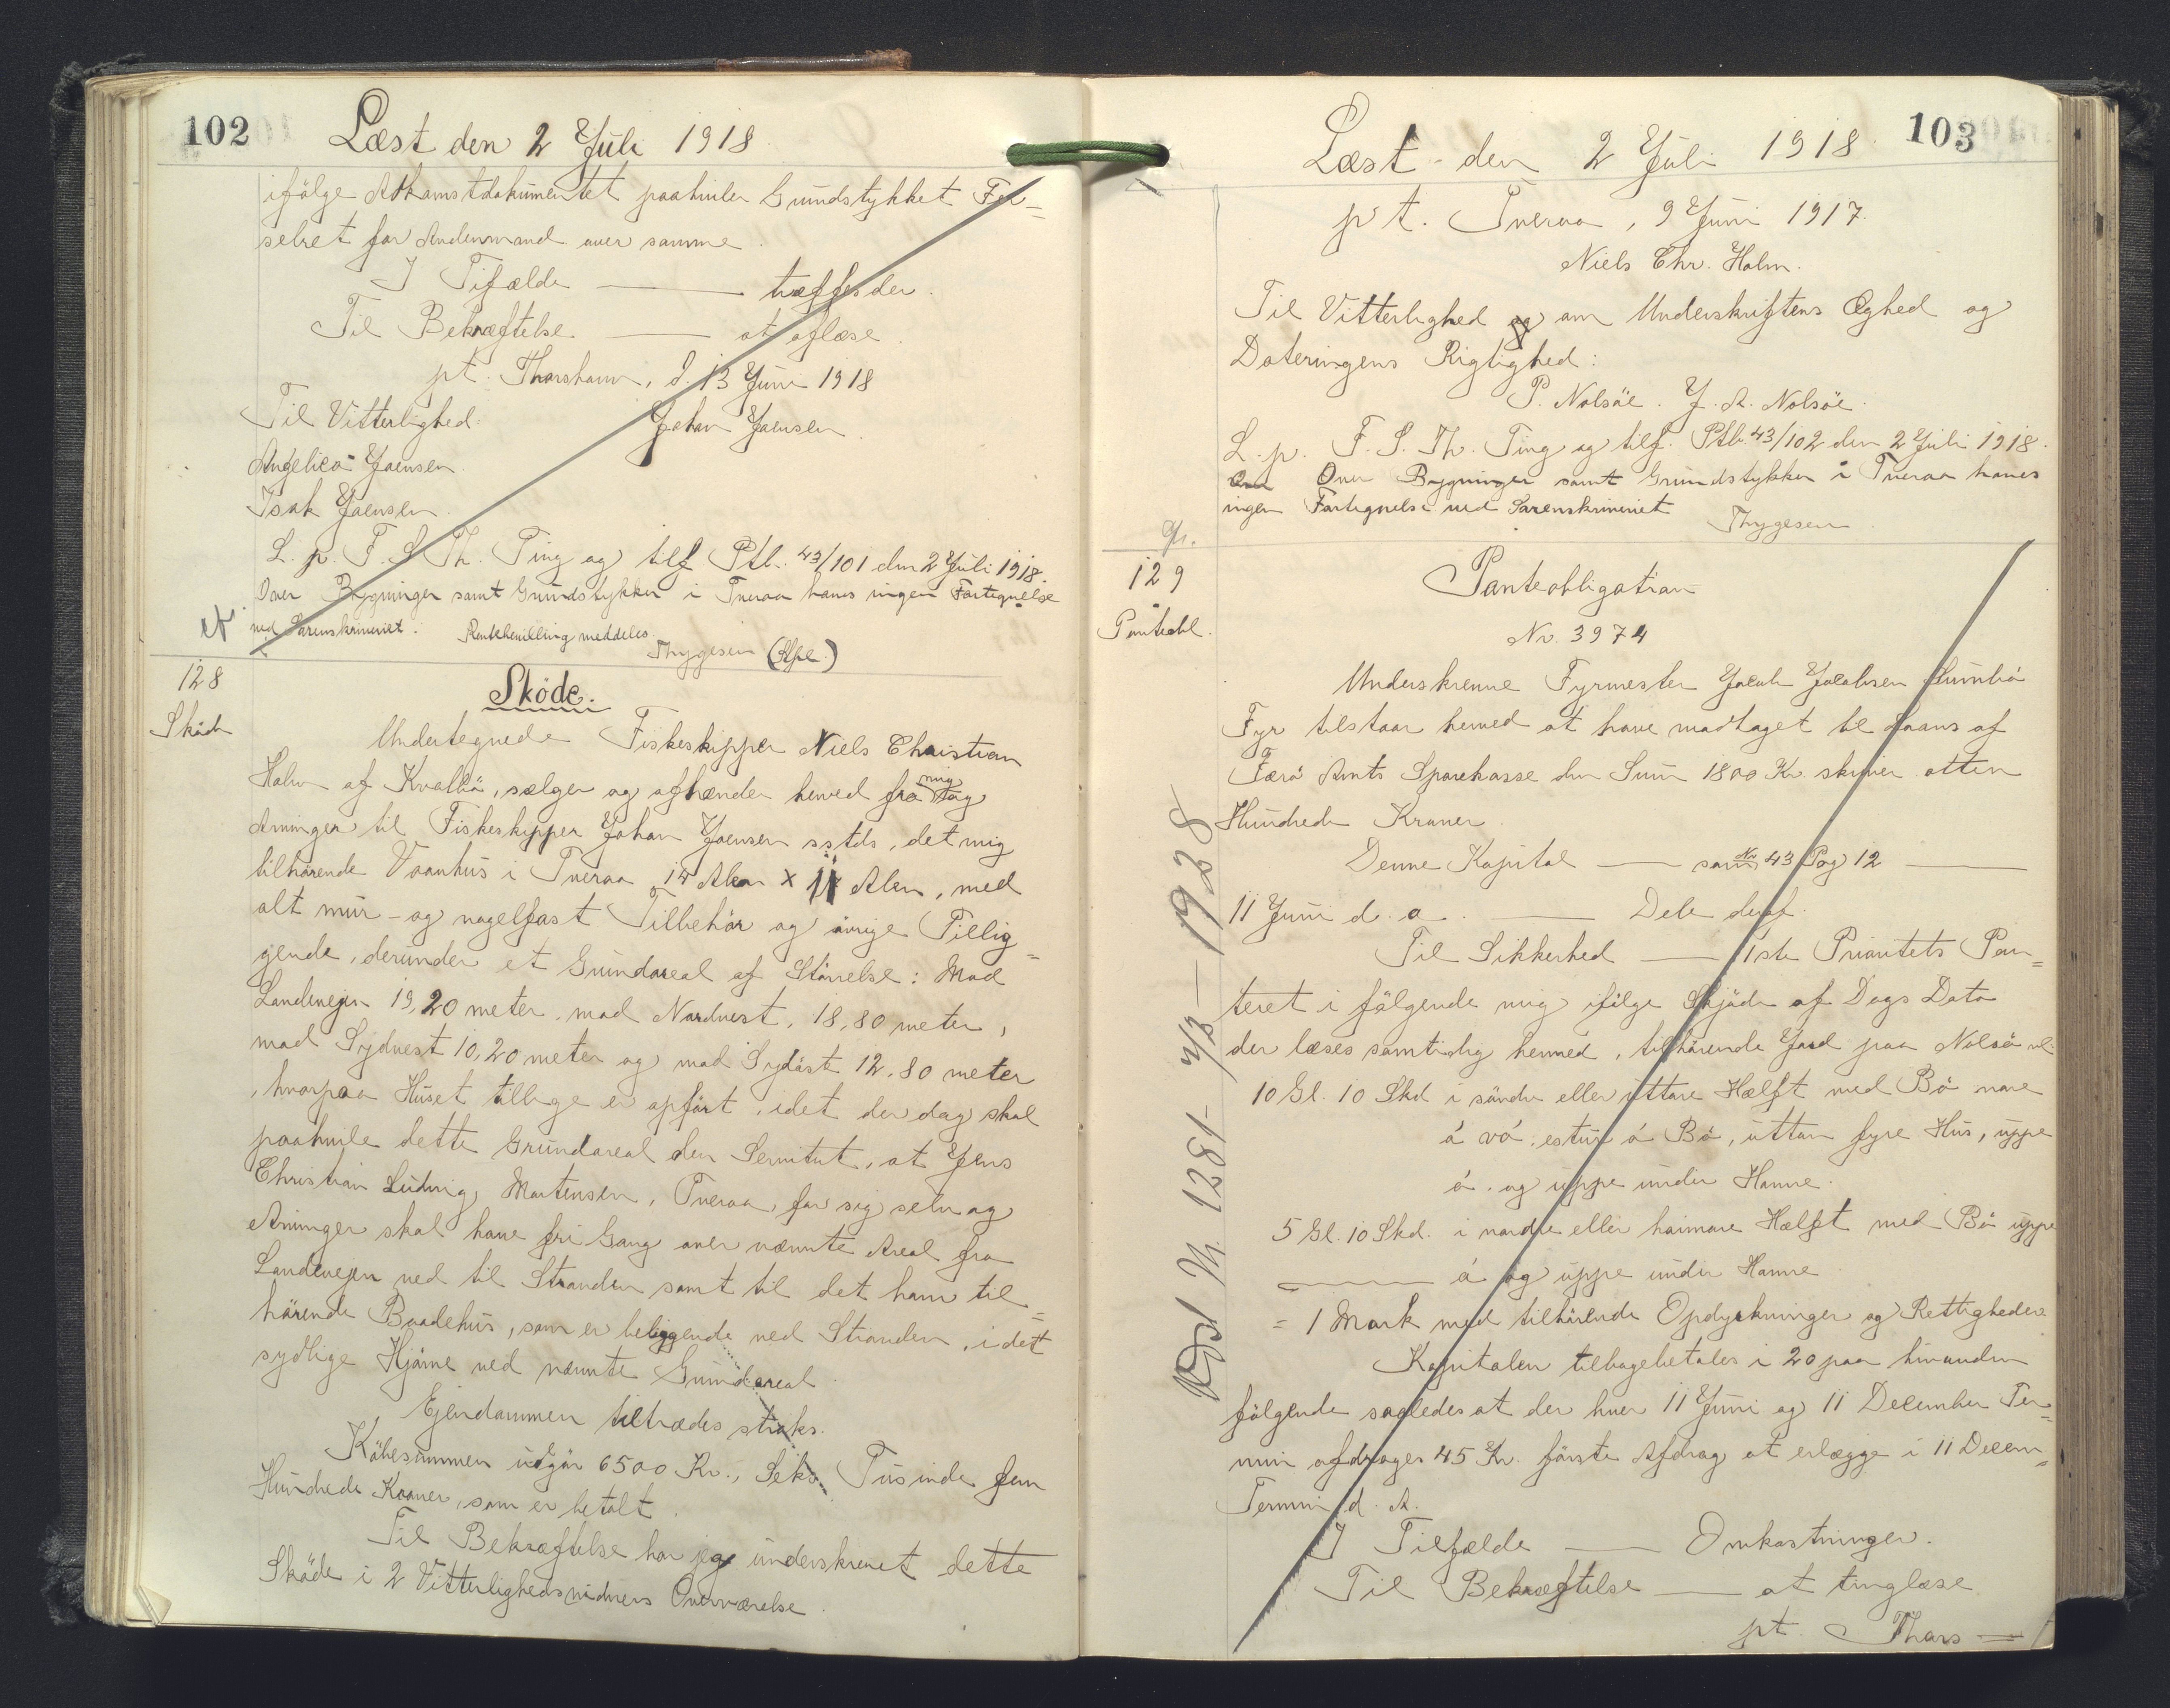 102
Læst den 2 Juli 1918
ifölge Adkomstdokumentet paahviler Grundstykket For=
selret for Andenmand over samme.
I Tifælde —— træffes der.
Til Bekræftelse —— at aflæse.
pt. Thorshavn, d. 13 Juni 1918
Til Vitterlighed: Johan Joensen.
Angelica Joensen.
Isak Joensen.
L. p. F. S Th. Ting og tilf Ptb. 43/101 den 2 Juli 1918.
Over Bygninger samt Grundstykker i Tveraa haves ingen Fortegnelse
ved Sorenskriveriet. meddeles.
Thygesen
128
Sköde
Sköde.
Undertegnede Fiskeskipper Niels Christian
Holm af Kvalbö, sælger og afhænder herved fra mig og
Arvinger til Fiskeskipper Johan Joensen sstds, det mig
tilhörende Vaanhus i Tveraa 14 Alen x 11 Alen, med
alt mur- og nagelfast Tilbehör og övrige Tillig=
gende, derunder et Grundareal af Störrelse: Mod
Landevejen 19,20 meter, mod Nordvest, 18,80 meter,
mod Sydvest 10,20 meter og mod Sydöst 12,80 meter
, hvorpaa Huset tillige er opfört, idet der dog skal
paahvile dette Grundareal den Servitut, at Jens
Christian Ludvig Mortensen, Tveraa, for sig selv og
Arvinger skal have fri Gang over nævnte Areal fra
Landevejen ned til Stranden samt til det ham til=
hörende Baadehus, som er beliggende ved Stranden, i det
sydlige Hjörne ved nævnte Grundareal.
Ejendommen tiltrædes straks.
Köbesummen udgör 6500 Kr., Seks Tusinde fem
Hundrede Kroner, som er betalt.
Til Bekræftelse har jeg underskrevet dette
Sköde i 2 Vitterlighedsvidners Overværelse.
103
Læst den 2 Juli 1918
pt. Tveraa, 9 Juni 1917.
Niels Chr. Holm.
Til Vitterlighed og om Underskriftens Æghed og
Dateringens Rigtighed:
P. Nolsöe. J. A. Nolsöe.
L. p. F. S. Th. Ting og tilf. Ptb. 43/102 den 2 Juli 1918.
Over Bygninger samt Grundstykker i Tveraa haves
ingen Fortegnelse ved Sorenskriveriet
Thygesen
129
Panteobl.
Panteobligation
No. 3974
Underskrevne Fyrmester Jacob Jacobsen Sumbö
Fyr tilstaar herved at have modtaget til Laans af
Færö Amts Sparekasse den Sum 1800 Kr. skriver atten
Hundrede Kroner.
Denne Kapital —— som No 43 Pag 12 ——
11 Juni d. a. —— Dele deraf.
Til Sikkerhed —— 1ste Prioritets Pan=
teret i fölgende mig ifölge Skjöde af Dags Dato
der læses samtidig hermed, tilhörende Jord paa Nolsö nl.
10 Gl. 10 Skd i söndre eller uttare Hælft med Bö nare
á vö, estur á Bö, uttan fyre Hus, uppe
á, og uppe under Hamre.
5 Gl. 10 Skd. i nordre eller haimare Hælft med Bö uppe
—— á og uppe under Hamre
= 1 Mark med tilhörende Opdyrkninger og Rettigheder
Kapitalen tilbagebetales i 20 paa hinanden
fölgende saaledes at der hver 11 Juni og 11 December Ter=
min afdrages 45 Kr. förste Afdrag at erlægge i 11 Decem=
Termin d. A.
I Tilfælde —— Omkostninger.
Til Bekræftelse —— at tinglæse
pt. Thors=